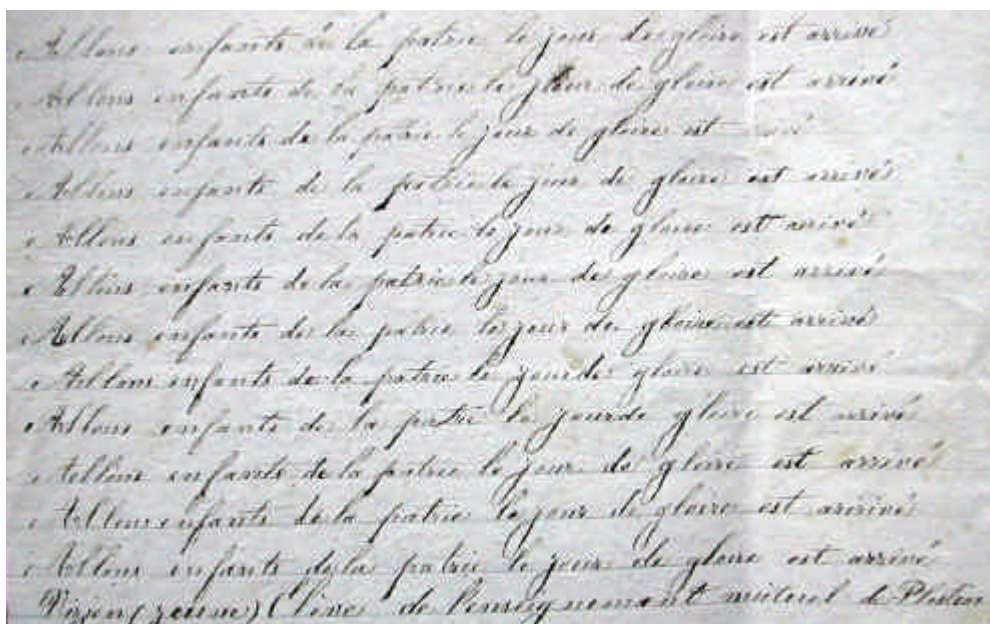 Allons enfants de la patrie le jour de gloire est arrivé
Allons enfants de la patrie le jour de gloire est arrivé
Allons enfants de la patrie le jour de gloire est
Allons enfants de la patrie le jour de gloire est arrivé
Allons enfants de la patrie le jour de gloire est arrivé
Allons enfants de la patrie le jour de gloire est arrivé
Allons enfants de la patrie le jour de gloire est arrivé
Allons enfants de la patrie le jour de gloire est arrivé
Allons enfants de la patrie le jour de gloire est arrivé
Allons enfants de la patrie le jour de gloire est arrivé
Allons enfants de la patrie le jour de gloire est arrivé
Allons enfants de la patrie le jour de gloire est arrivé
(jeune) de mutuel de